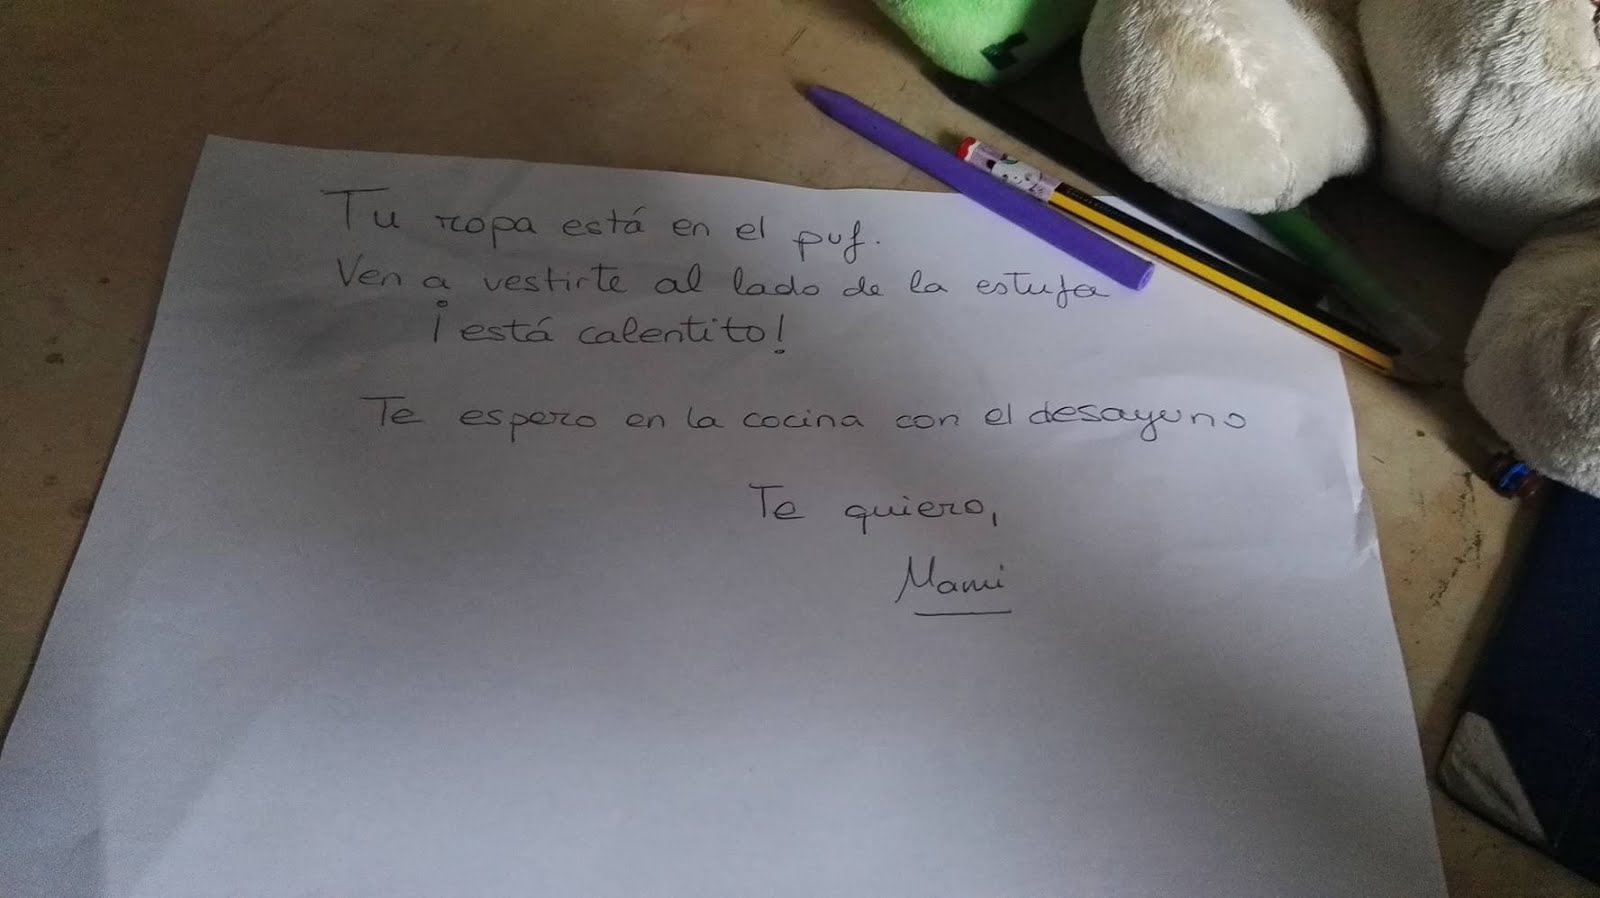 Tu ropa está en el puf.
Ven a vestirte al lado de la estufa
¡está calentito!
Te espero en la cocina con el desayuno
Te quiero,
Mami